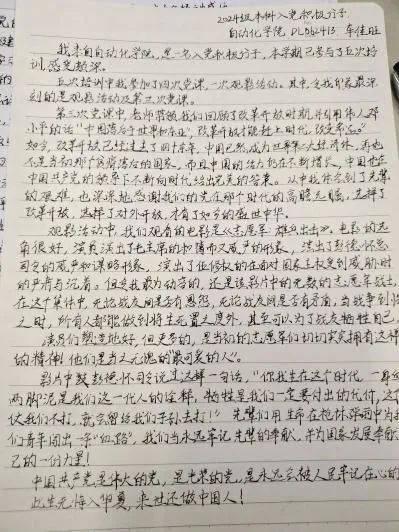 2024级本科入党积极分子
自动化学院 DL062413 车佳旺
我来自自动化学院,是一名入党积极分子,本学期已参与了五次培训,感受颇深。
五次培训中我参加了四次党课,一次观影活动。其中令我印象最深刻的是观影活动及第三次党课。
第三次党课中,老师带领我们回顾了改革开放时期,并引用伟人邓小平的话“中国落后于世界和专业”,改革开放才能赶上时代,改变命运。
如今,改革开放已经过去了四十余年,中国已然成为世界第二大经济体,再也不是当初那个贫穷落后的国家,而且中国的活力仍在不断增长,中国也在中国共产党的领导下不断向时代给出完美的答案。从中我体会到了先辈的艰难,也深深地感谢我们的党在那个时代的高瞻远瞩,选择了改革开放,选择了对外开放,才有了如今的盛世中华。
观影活动中,我们观看的电影是《志愿军:雄兵出击》。电影的选角很好,演员演出了毛主席的和蔼而又威严的形象,演出了彭德怀总司令的威严和谋略形象,演出了伍修权的在面对国家主权受到威胁时的严肃与沉着,但令我最为动容的,还是该影片中的无数的志愿军战士,在这个集体中,无论战友间是否有恩怨,无论战友间是否有矛盾,当战争到来之时,所有人都能做到将生死置之度外,甚至可以为了战友牺牲自己,
演员们塑造地好,但更多的,是当初的志愿军们切切实实拥有这样的精神!他们是当之无愧的“最可爱的人”。
影片中彭德怀司令说过这样一句话,“你我生在这个时代,一身
两脚泥是我们这一代人的诠释,牺牲是我们一定要付出的代价,这
仗我们不打,就会留给我们子孙去打!”先辈们用生命在枪林弹雨中为
们青年闯出一条“血路”,我们当永远牢记先辈的奉献,并为国家发展奉献
己的一份力量!
中国共产党是伟大的党,是光荣的党,是永远会被人民牢记在心的
此生无悔入华夏,来世还做中国人!